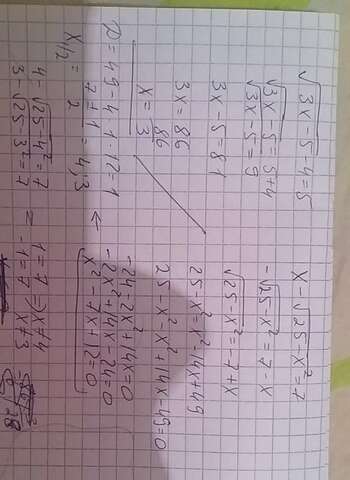 √(3x-5) - 4 = 5
√(3x-5) = 5+4
√(3x-5) = 9
3x-5 = 81
3x = 86
x = 86/3
x - √(25-x²) = 7
-√(25-x²) = 7-x
√(25-x²) = -7+x
25-x² = x²-14x+49
25-x²-x²+14x-49=0
-24-2x²+14x=0
-2x²+14x-24=0
x²-7x+12=0
D = 49-4·1·12=1 ←
x1/2 = (7±1)/2 = 4;3
4-√(25-4²)=7 1=7 ⇒ x≠4
3-√(25-3²)=7 = -1=7 x≠3